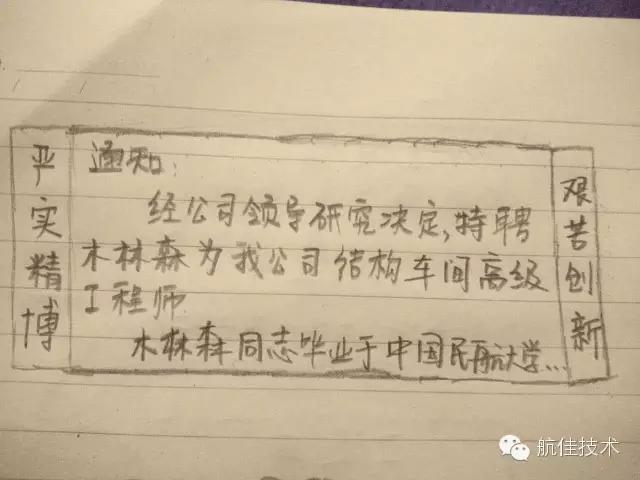 严实精博
通知:
经公司领导研究决定,特聘
木林森为我公司结构车间高级
工程师
木林森同志毕业于中国民航大学...
艰苦创新
航佳技术